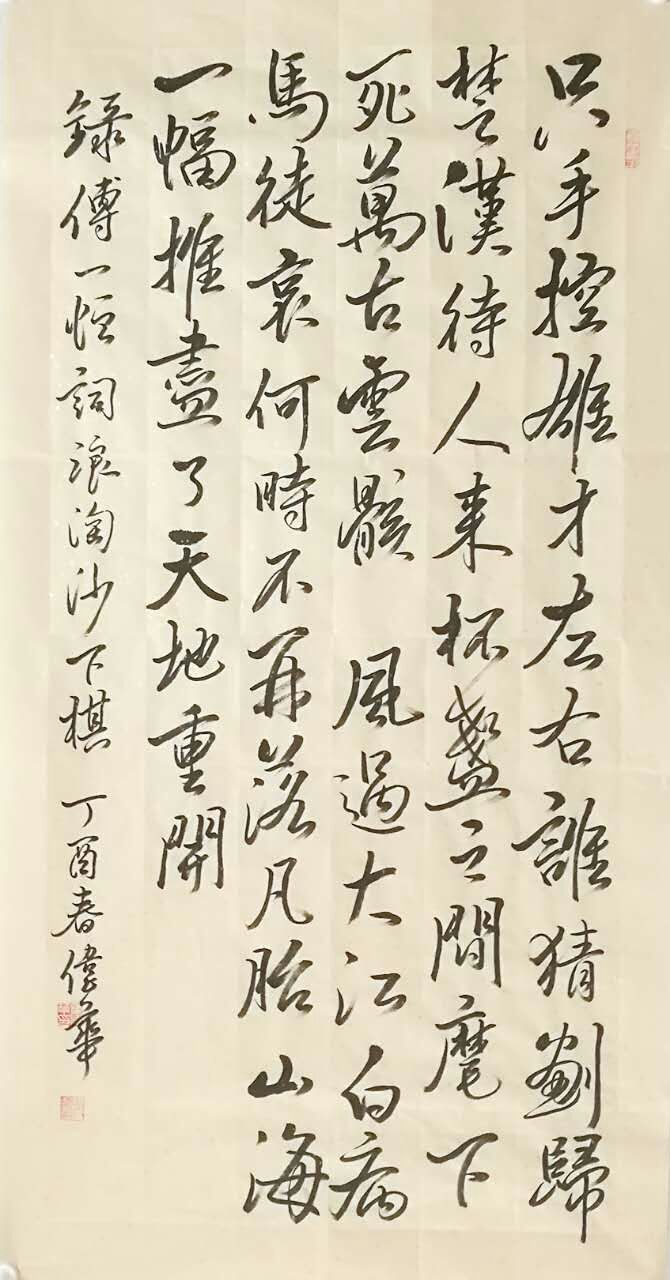 只手控雄才左右誰猜劃歸
楚漢待人来杯盞之間麾下
死萬古雲骸 風過大江白病
馬徒哀何時不再落凡胎山海
一幅推盡了天地重開
錄傅一恒詞浪淘沙下棋 丁酉春偉華